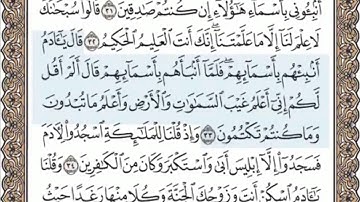 أَنۢبِـُٔونِى بِأَسْمَآءِ هَـٰٓؤُلَآءِ إِن كُنتُمْ صَـٰدِقِينَ ٣١ قَالُوا۟ سُبْحَـٰنَكَ
لَا عِلْمَ لَنَآ إِلَّا مَا عَلَّمْتَنَآ ۖ إِنَّكَ أَنتَ ٱلْعَلِيمُ ٱلْحَكِيمُ ٣٢ قَالَ يَـٰٓـَٔادَمُ
أَنۢبِئْهُم بِأَسْمَآئِهِمْ ۖ فَلَمَّآ أَنۢبَأَهُم بِأَسْمَآئِهِمْ قَالَ أَلَمْ أَقُل
لَّكُمْ إِنِّىٓ أَعْلَمُ غَيْبَ ٱلسَّمَـٰوَٰتِ وَٱلْأَرْضِ وَأَعْلَمُ مَا تُبْدُونَ
وَمَا كُنتُمْ تَكْتُمُونَ ٣٣ وَإِذْ قُلْنَا لِلْمَلَـٰٓئِكَةِ ٱسْجُدُوا۟ لِـَٔادَمَ
فَسَجَدُوٓا۟ إِلَّآ إِبْلِيسَ أَبَىٰ وَٱسْتَكْبَرَ وَكَانَ مِنَ ٱلْكَـٰفِرِينَ ٣٤ وَقُلْنَا
يَـٰٓـَٔادَمُ ٱسْكُنْ أَنتَ وَزَوْجُكَ ٱلْجَنَّةَ وَكُلَا مِنْهَا رَغَدًا حَيْثُ